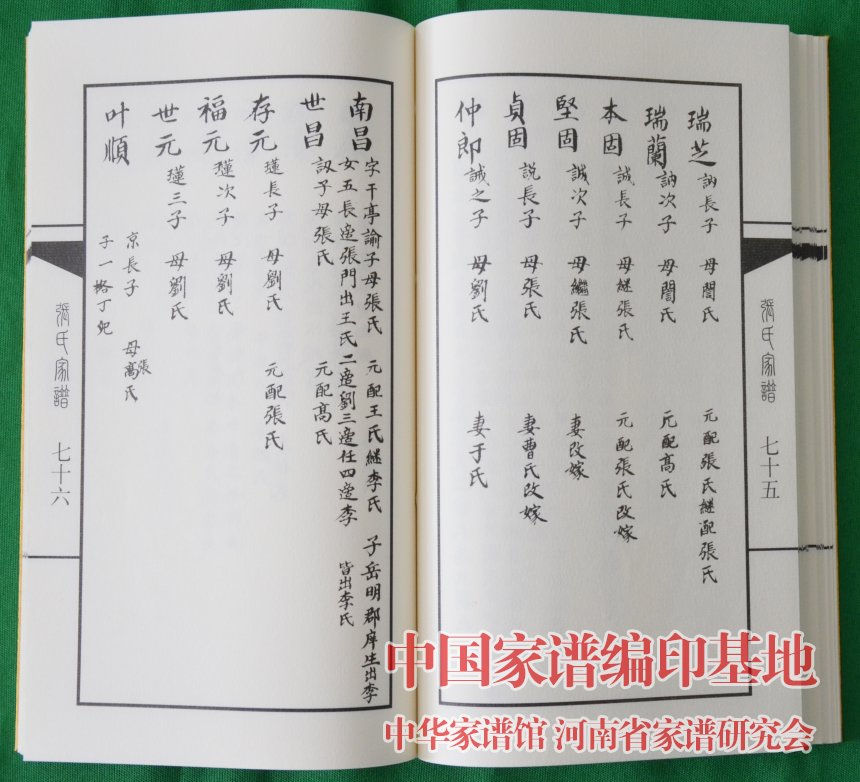 瑞芝 訥長子 母閻氏 元配張氏継配張氏
瑞蘭 訥次子 母閻氏 元配高氏
本固 誠長子 母継張氏 元配張氏改嫁
堅固 誠次子 母繼張氏 妻改嫁
貞固 説長子 母張氏 妻曹氏改嫁
仲郎 誠之子 母劉氏 妻于氏
張氏家譜 七十五
南昌 字干亭諭子母張氏 元配王氏継李氏 子岳明郡庠生出李
女五長適張門出王氏二適劉三適任四適李 皆出李氏
世昌 訒子母張氏 元配高氏
存元 瑾長子 母劉氏 元配張氏
福元 瑾次子 母劉氏
世元 瑾三子 母劉氏
叶順 京長子 母張高氏
子一格丁兒
張氏家譜 七十六
中国家谱编印基地
中华家谱馆 河南省家谱研究会